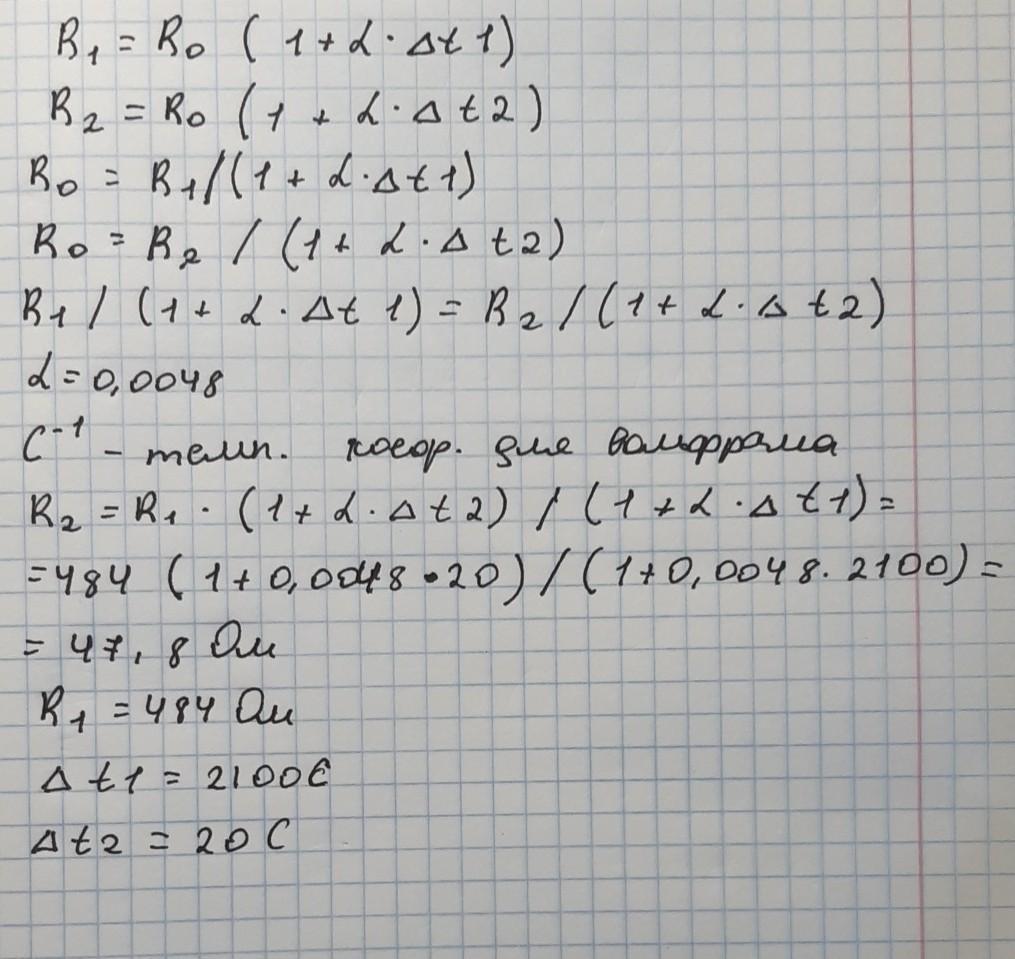 R₁ = R₀ (1 + α · Δt1)
R₂ = R₀ (1 + α · Δt2)
R₀ = R₁/(1 + α · Δt1)
R₀ = R₂ / (1 + α · Δt2)
R₁ / (1 + α · Δt1) = R₂ / (1 + α · Δt2)
α = 0,0048
C⁻¹ - темп. коэф. для вольфрама
R₂ = R₁ · (1 + α · Δt2) / (1 + α · Δt1) =
= 484 (1 + 0,0048 · 20) / (1 + 0,0048 · 2100) =
= 47,8 Ом
R₁ = 484 Ом
Δt1 = 2100C
Δt2 = 20 C